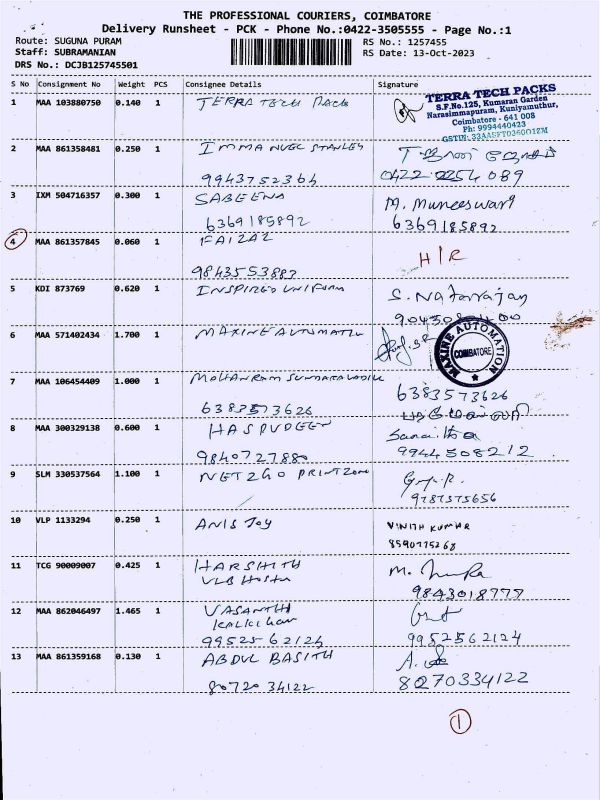 THE PROFESSIONAL COURIERS, COIMBATORE
Delivery Runsheet - PCK - Phone No.:0422-3505555 - Page No.:1
Route: SUGUNA PURAM
RS No.: 1257455
Staff: SUBRAMANIAN
RS Date: 13-Oct-2023
DRS No.: DCJB125745501
S No Consignment No Weight PCS Consignee Details Signature
1 MAA 103880750 0.140 1 TERRA TECH Pack
TERRA TECH PACKS
S.F.No.125, Kumaran Garden
Narasimmapuram, Kuniyamuthur,
Coimbatore - 641 008
Ph: 9994440423
2 MAA 861358481 0.250 1 IMMANUEL STANLEY
9943752364
3 IXM 504716357 0.300 1 SABEENA M. Muneeswari
6369185892 6369185892
4 MAA 861357845 0.060 1 FAIZAL H/R
9843553887
5 KDI 873769 0.620 1 INSPIRED UNIFORM S. Natarajan
6 MAA 571402434 1.700 1 MAXINE AUTOMATIC
MAXINE AUTOMATION
COIMBATORE
7 MAA 106454409 1.000 1 6383573626
6383573626
8 MAA 300329138 0.600 1
9840727880 9944508212
9 SLM 330537564 1.100 1 NET2GO PRINTZONE
9787575656
10 VLP 1133294 0.250 1 ANIS JOY VINITH KUMAR
11 TCG 90009007 0.425 1 HARSHITH M.
VLB 9843018777
12 MAA 862046497 1.465 1 VASANTHI
9952562124 9952562124
13 MAA 861359168 0.130 1 ABDUL BASITH
80720 34122 8070334122
1